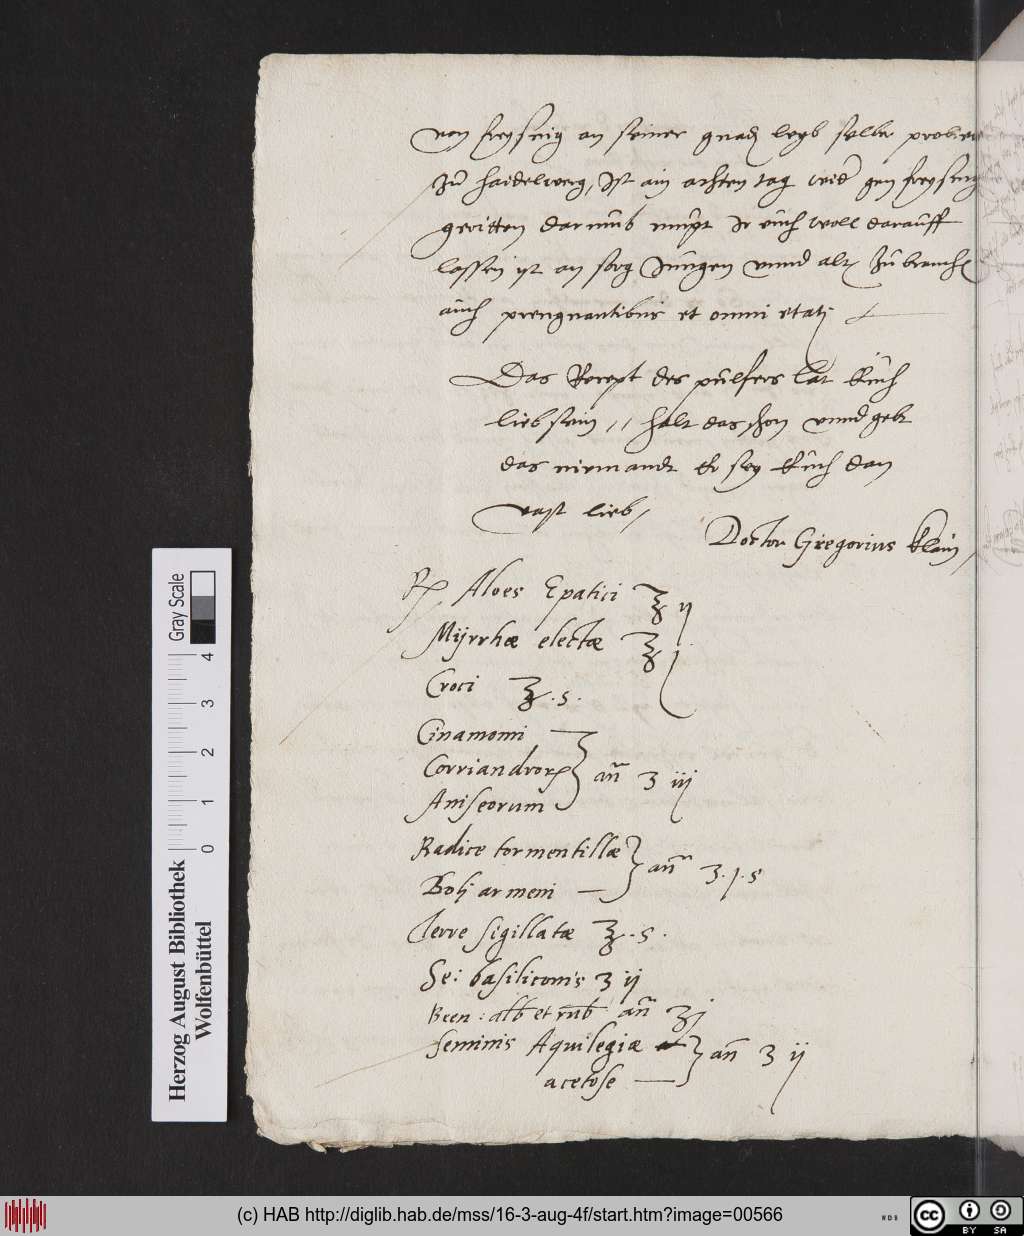 von freysing an seiner gnad leyb selber probiert
zu haidelwerg, Ist ain achten tag wid gen freysing
geritten darumb mugt Ir euch woll darauff
lassen ist an sorg Jungen unnd alt zu brauche
auch prengnantibus et omni etatj
Das Recept des pulfers lat Euch
lieb sein // halt das schon unnd gebt
das niemandt Er sey Euch dan
vast lieb /
Doctor Gregorius klain /
℞ Aloes Epatici ℥ ij
Myrrhæ electæ ℥ j
Croci ℥ . s .
Cinamomi
Corriandror
Aniseorum
an ʒ iij
Radice tormentillæ
Bolj armeni
an ʒ . j . s
Terre sigillatæ ℥ . s .
Se: basiliconis ʒ ij
Been : alb et rub an ʒ j
seminis Aquilegiæ
acetose
an ʒ ij
Herzog August Bibliothek
Wolfenbüttel
0 1 2 3 4
Gray Scale
(c) HAB http://diglib.hab.de/mss/16-3-aug-4f/start.htm?image=00566
WDB
cc BY SA